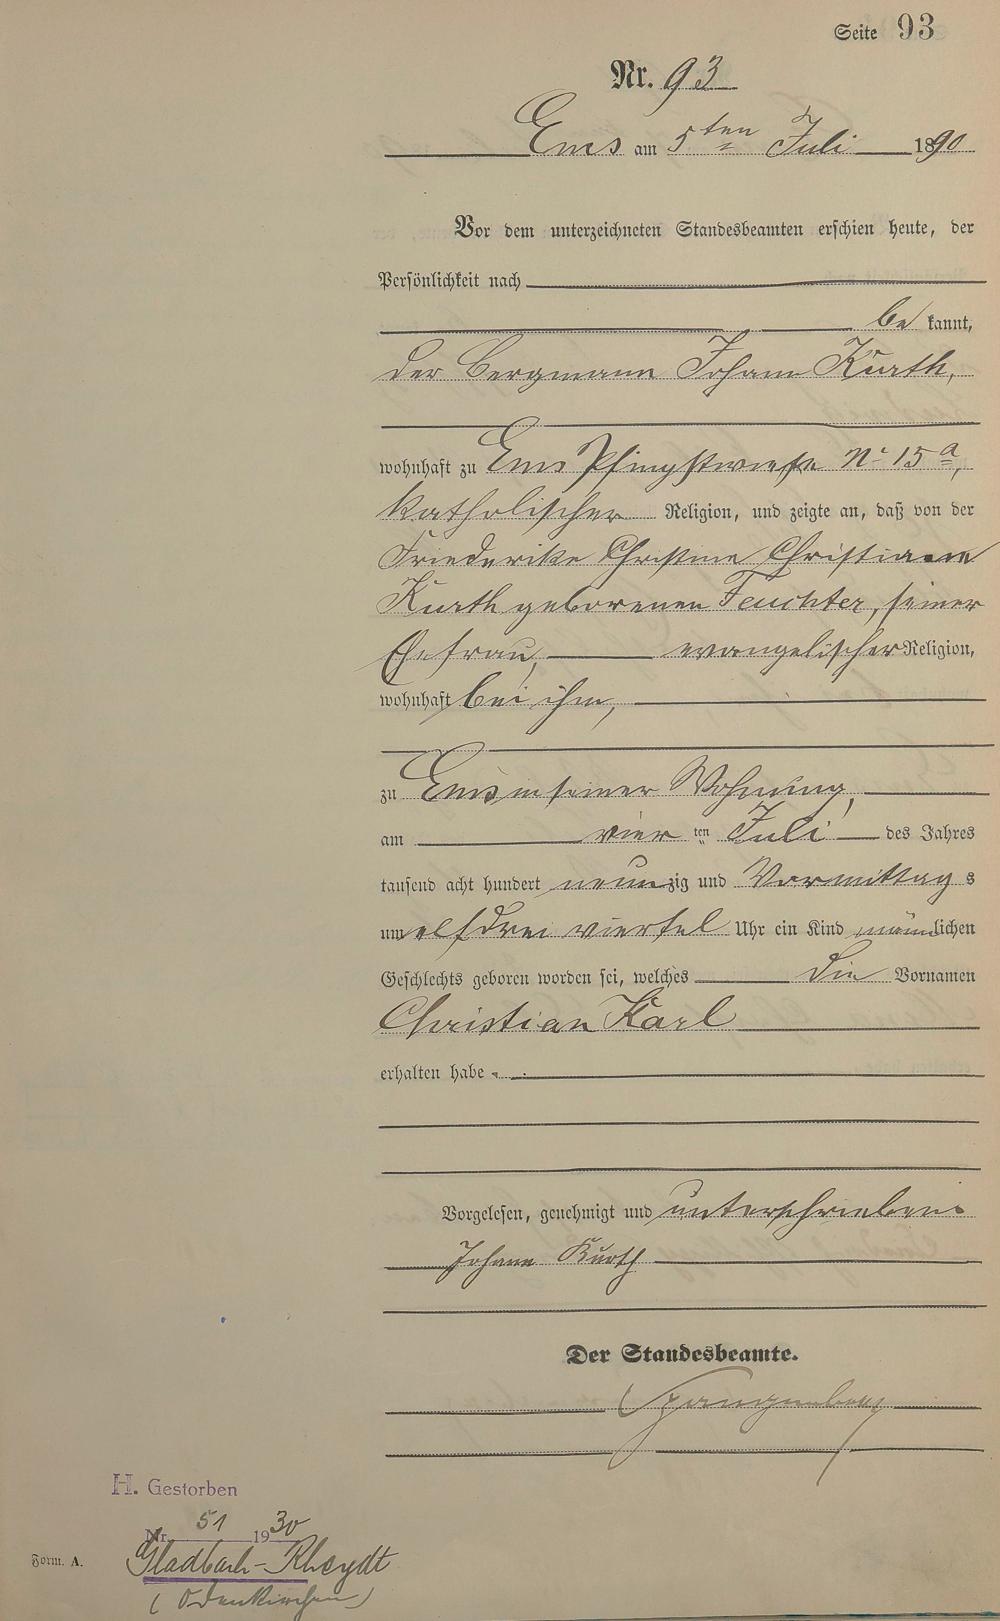 Seite 93
Nr. 93
Ems am 5ten Juli 1890
Vor dem unterzeichneten Standesbeamten erschien heute, der
Persönlichkeit nach
be kannt,
der Bergmann Johann Kurth,
wohnhaft zu Ems Pfingstwiese No 15a,
katholischer Religion, und zeigte an, daß von der
Friederike Christine Christiane
Kurth geborenen Feuchter, seiner
Ehefrau, evangelischer Religion,
wohnhaft bei ihm,
zu Ems in seiner Wohnung,
am vier ten Juli des Jahres
tausend acht hundert neunzig und Vormittag s
um elf drei viertel Uhr ein Kind männlichen
Geschlechts geboren worden sei, welches die Vornamen
Christian Karl
erhalten habe.
Vorgelesen, genehmigt und unterschrieben
Johann Kurth
Der Standesbeamte.
H. Gestorben
Nr. 51 1930
Gladbach-Rheydt
(Odenkirchen)
Form. A.